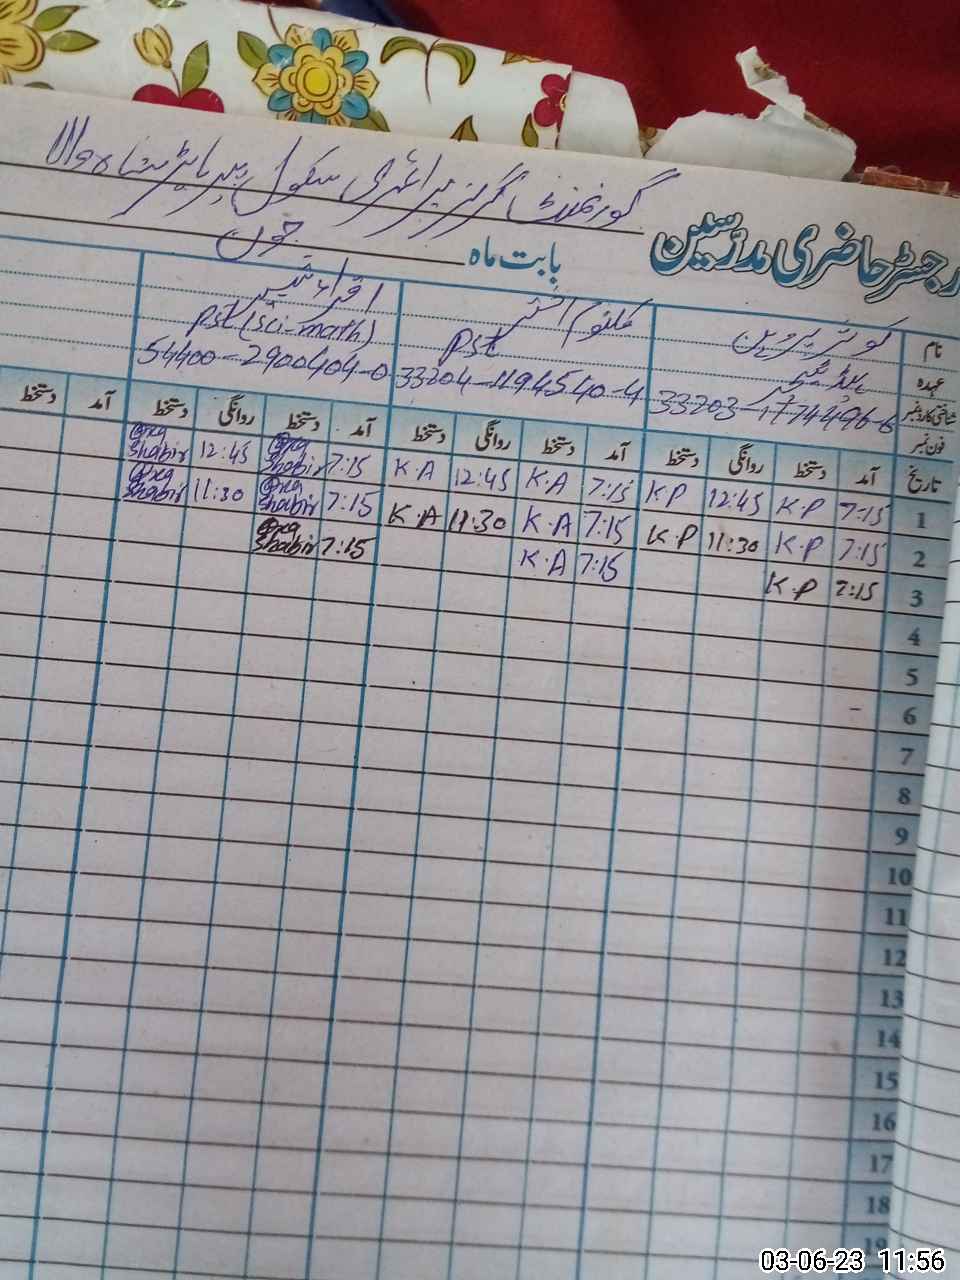 گورنمنٹ گرلز پرائمری سکول پیر پاپڑ شاہ والا
رجسٹر حاضری مدرسین
بابت ماہ جون
نام کوثر پروین کلثوم اختر اقراء شبیر
عہدہ ہیڈ ٹیچر PST PST (Sci-math)
شناختی کارڈ نمبر 33203-1774496-6 33204-1194540-4 54400-2900404-0
فون نمبر
تاریخ آمد دستخط روانگی دستخط آمد دستخط روانگی دستخط آمد دستخط روانگی دستخط آمد دستخط
1 7:15 K.P 12:45 K.P 7:15 K.A 12:45 K.A 7:15 Iqra Shabir 12:45 Iqra Shabir
2 7:15 K.P 11:30 K.P 7:15 K.A 11:30 K.A 7:15 Iqra Shabir 11:30 Iqra Shabir
3 7:15 K.P 7:15 K.A 7:15 Iqra Shabir
4
5
6
7
8
9
10
11
12
13
14
15
16
17
18
19
03-06-23 11:56